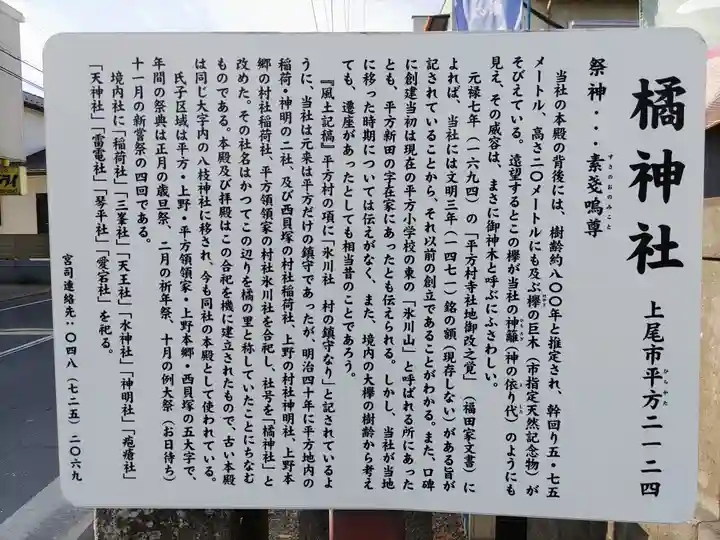 橘神社
上尾市平方二一二四
ひらかた
祭神・・・素戔嗚尊
すさのおのみこと
当社の本殿の背後には、樹齢約八〇〇年と推定され、幹回り五・七五
メートル、高さ二〇メートルにも及ぶ欅の巨木（市指定天然記念物）が
そびえている。遠望するとこの欅が当社の神籬（神の依り代）のようにも
見え、その威容は、まさに御神木と呼ぶにふさわしい。
元禄七年（一六九四）の「平方村寺社地御改之覚」（福田家文書）に
よれば、当社には文明三年（一四七一）銘の額（現存しない）がある旨が
記されていることから、それ以前の創立であることがわかる。また、口碑
に創建当初は現在の平方小学校の東の「氷川山」と呼ばれる所にあった
とも、平方新田の字在家にあったとも伝えられる。しかし、当社が当地
に移った時期については伝えがなく、また、境内の大欅の樹齢から考え
ても、遷座があったとしても相当昔のことであろう。
『風土記稿』平方村の項に「氷川社　村の鎮守なり」と記されているよ
うに、当社は元来は平方だけの鎮守であったが、明治四十年に平方地内の
稲荷・神明の二社、及び西貝塚の村社稲荷社、上野の村社神明社、上野本
郷の村社稲荷社、平方領領家の村社氷川社を合祀し、社号を「橘神社」と
改めた。その社名はかつてこの辺りを橘の里と称していたことにちなむ
ものである。本殿及び拝殿はこの合祀を機に建立されたもので、古い本殿
は同じ大字内の八枝神社に移され、今も同社の本殿として使われている。
氏子区域は平方・上野・平方領領家・上野本郷・西貝塚の五大字で、
年間の祭典は正月の歳旦祭、二月の祈年祭、十月の例大祭（お日待ち）
十一月の新嘗祭の四回である。
境内社に「稲荷社」「三峯社」「天王社」「水神社」「神明社」「疱瘡社」
「天神社」「雷電社」「琴平社」「愛宕社」を祀る。
宮司連絡先：〇四八（七二五）二〇六九